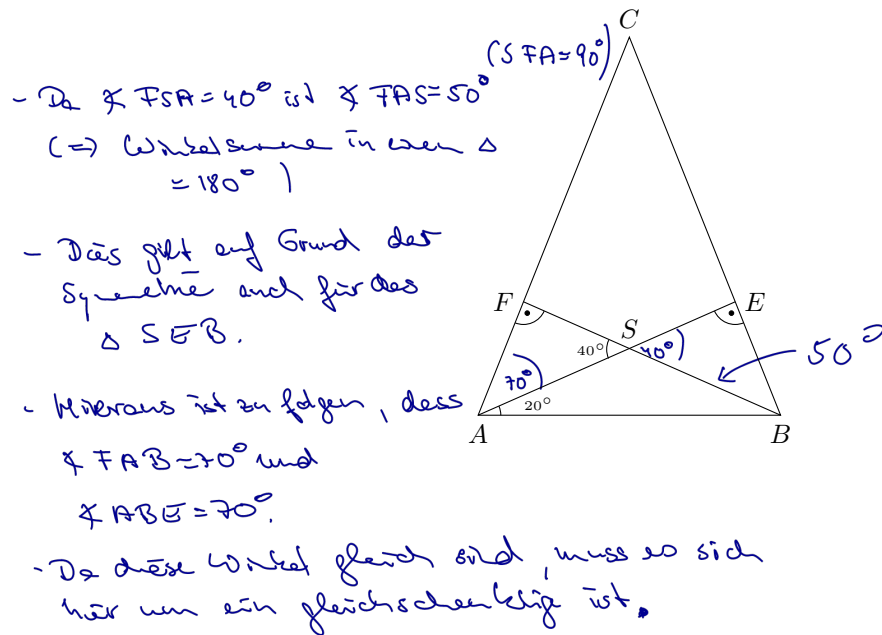 C
(SFA=90°)
- Da ∢ FSA=40° ist ∢ FAS=50°
(=> Winkelsumme in einem △
=180° )
- Dies gilt auf Grund der
Symmetrie auch für das
△ SEB.
F
E
S
40°
40°
50°
70°
20°
A
B
- Hieraus ist zu folgen, dass
∢ FAB=70° und
∢ ABE=70°.
- Da diese Winkel gleich sind, muss es sich
hier um ein gleichschenklig ist.